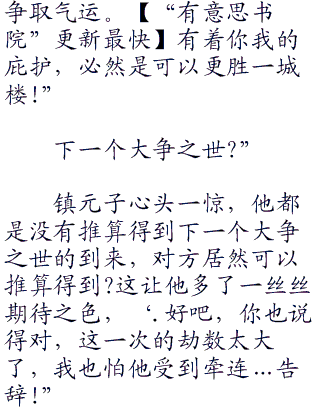 争取气运。【“有意思书
院”更新最快】有着你我的
庇护，必然是可以更胜一城
楼！”
下一个大争之世？”
镇元子心头一惊，他都
是没有推算得到下一个大争
之世的到来，对方居然可以
推算得到？这让他多了一丝丝
期待之色，‘.好吧，你也说
得对，这一次的劫数太大
了，我也怕他受到牵连…告
辞！”